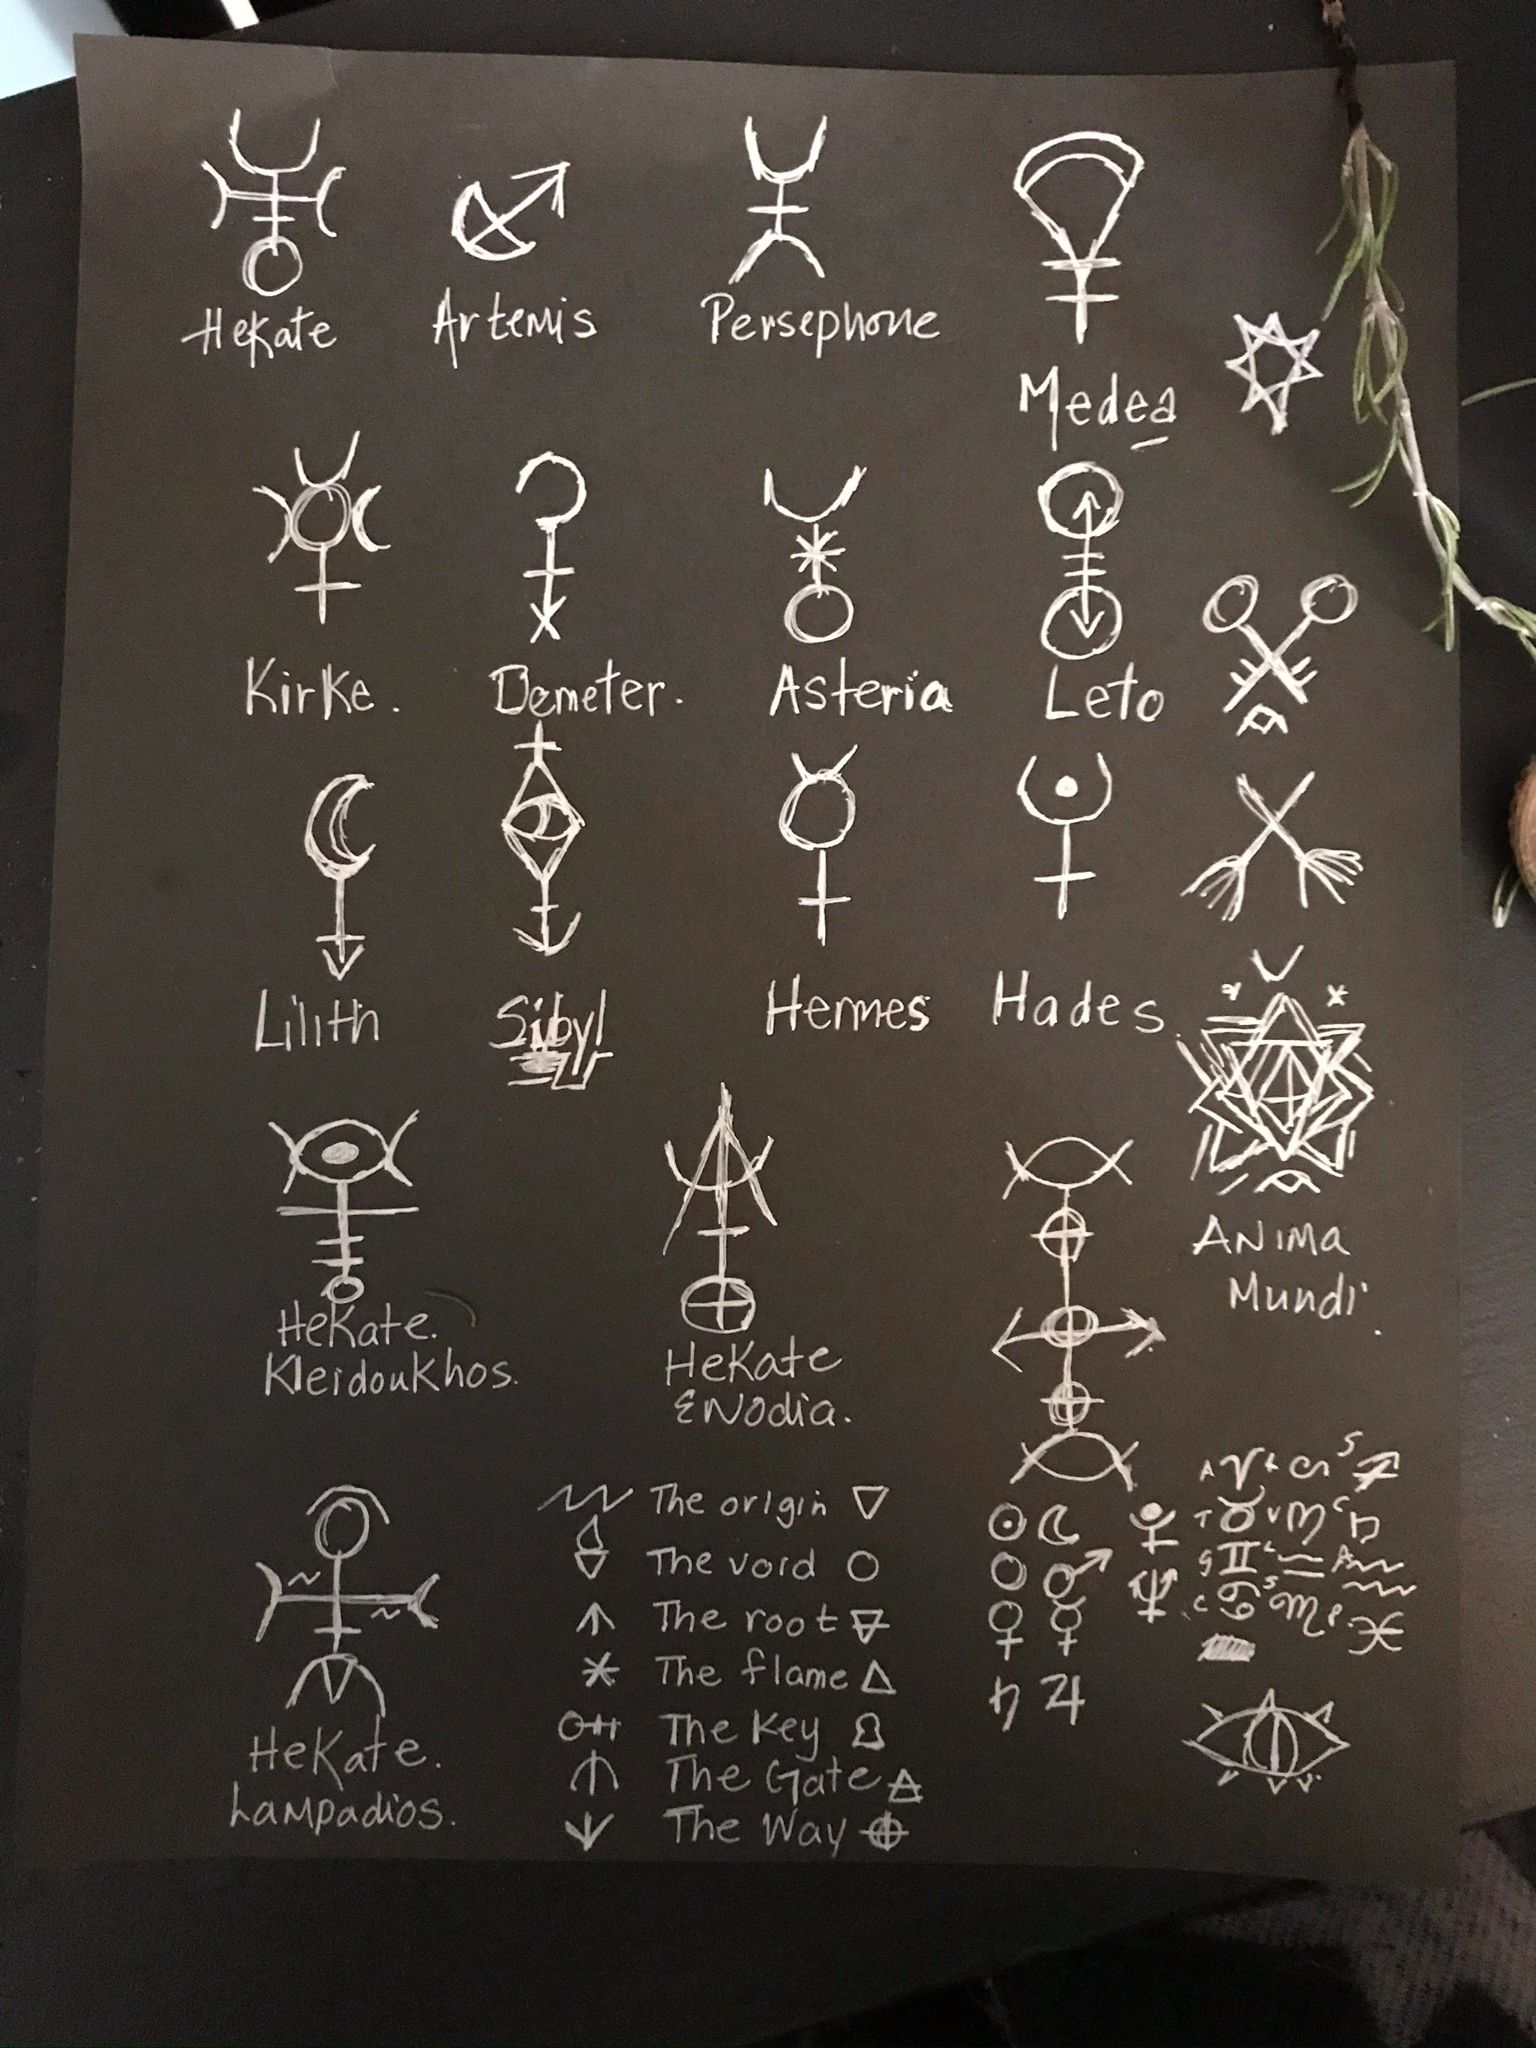 Hekate
Artemis
Persephone
Medea
Kirke.
Demeter.
Asteria
Leto
Lilith
Sibyl
Hermes
Hades.
Anima
Mundi.
Hekate.
Kleidoukhos.
Hekate
Enodia.
Hekate.
Lampadios.
The origin
The void
The root
The flame
The Key
The Gate
The Way
A ♈ L ♌ S ♐
T ♉ V ♍ C ♑
G ♊ L ♎ A ♒
C ♋ S ♏ P. ♓